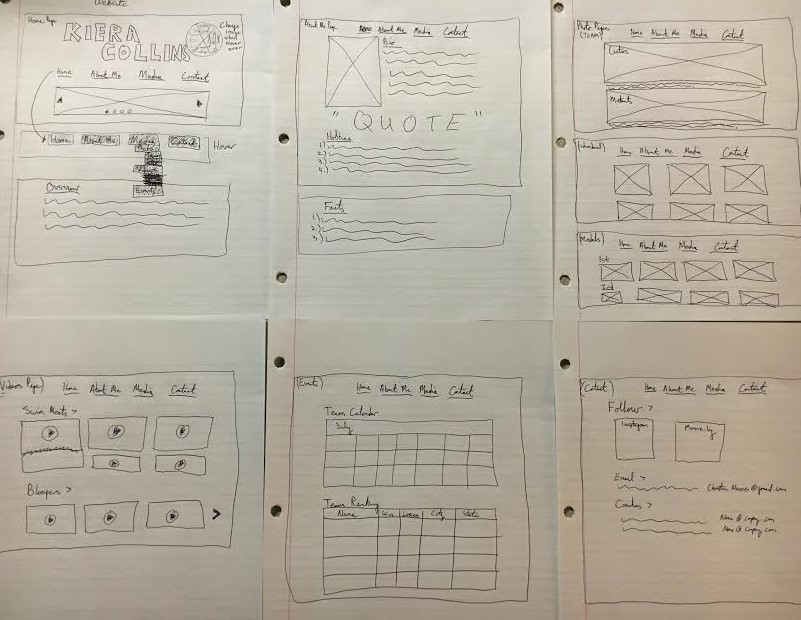 Website
Home Page
KIERA
COLLINS
Change
image
when
hover
over
Home About Me Media Contact
Home About Me Media Contact Hover
Events
Overview
About Me Page
Home About Me Media Contact
Bio
" QUOTE "
Hobbies
1.)
2.)
3.)
4.)
Facts
1.)
2.)
3.)
Photo Pages
Home About Me Media Contact
Individual)
Home About Me Media Contact
Medals)
Home About Me Media Contact
1st
2nd
Videos Page)
Home About Me Media Contact
Swim Meets >
Bloopers >
>
Events)
Home About Me Media Contact
Team Calendar
July
Team Ranking
Name Win Losses City State
Contact)
Home About Me Media Contact
Follow >
Instagram
Email >
@gmail.com
Coaches >